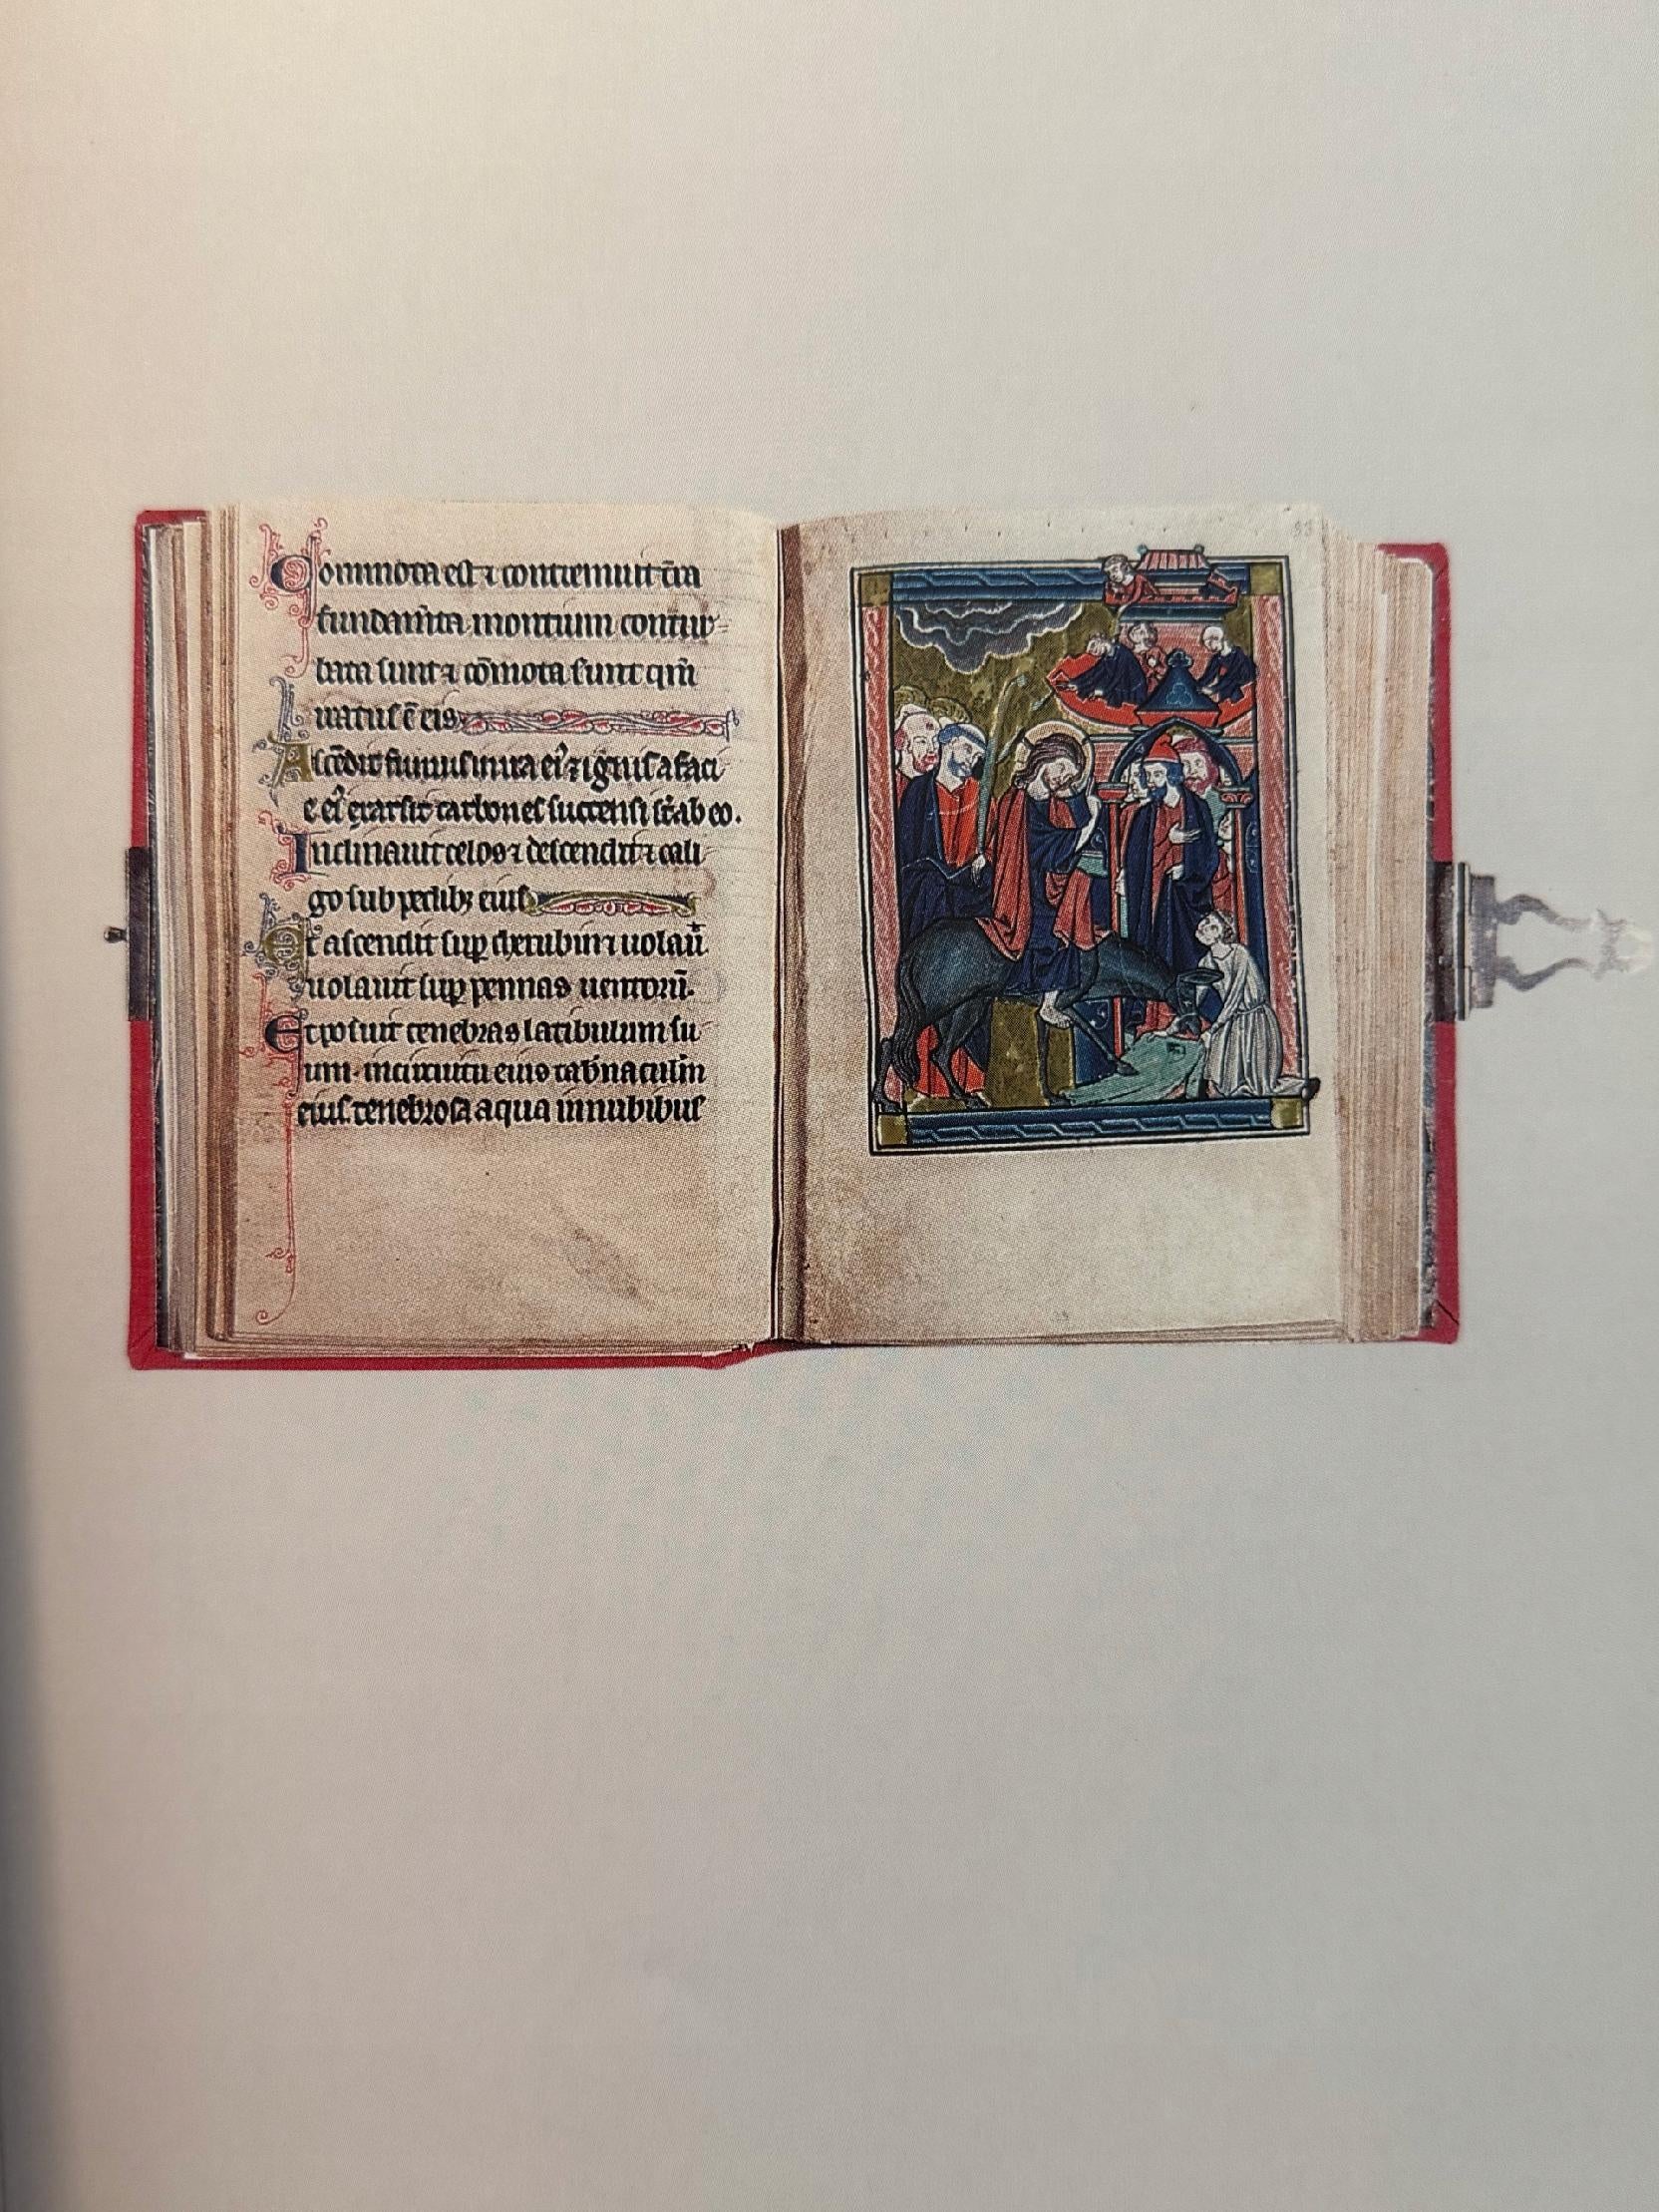 Commota est ⁊ contremuit t̄ra
fundam̄ta montium contur-
bata sunt ⁊ cōmota sunt qm̄
iratus ē eis
Ascēdit fumus in ira ei᷒ ⁊ ignis a faci-
e ei᷒ exarsit carbones succensi st̄ ab eo.
Inclinauit celos ⁊ descendit ⁊ cali-
go sub pedibꝫ eius
Et ascendit suꝑ cherubin ⁊ uolauͭ
uolauit suꝑ pennas uentoꝝ̄.
Et posuit tenebras latibulum su-
um. in circuitu eius tab̄naculm̄
eius. tenebrosa aqua in nubibus
33